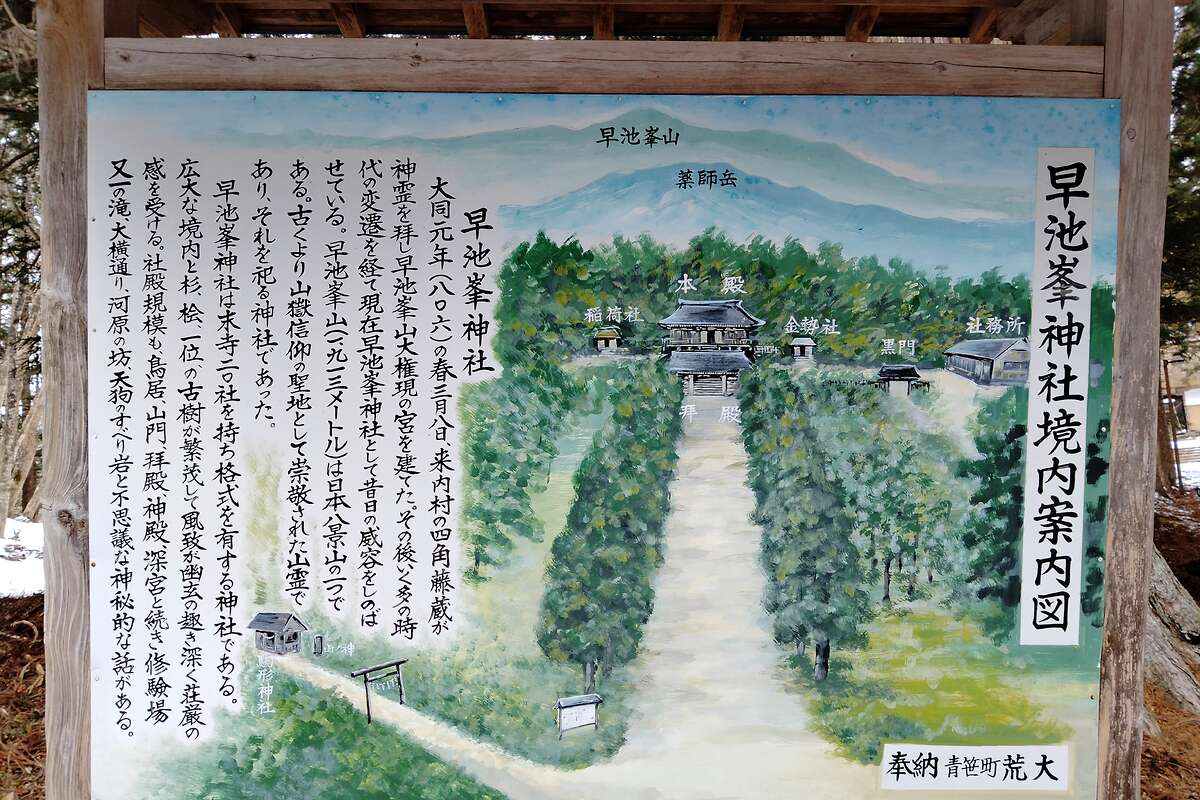 早池峯神社境内案内図
早池峯山
薬師岳
本殿
稲荷社
金勢社
社務所
黒門
拝殿
早池峯神社
大同元年(八〇六)の春三月八日、来内村の四角藤蔵が
神霊を拝し早池峯山大権現の宮を建てた。その後、いく多の時
代の変遷を経て現在早池峯神社として昔日の威容をしのば
せている。早池峯山(一、九一三メートル)は日本八景山の一つで
ある。古くより山嶽信仰の聖地として崇敬された山霊で
あり、それを祀る神社であった。
早池峯神社は末寺二〇社を持ち格式を有する神社である。
広大な境内と杉、桧、一位の古樹が繁茂して風致が幽玄の趣き深く荘厳の
感を受ける。社殿規模も鳥居、山門、拝殿、神殿、深宮と続き修験場
又一の滝、大横通り、河原の坊、天狗のすべり岩と不思議な神秘的な話がある。
山ノ神
駒形神社
奉納 青笹町 荒大